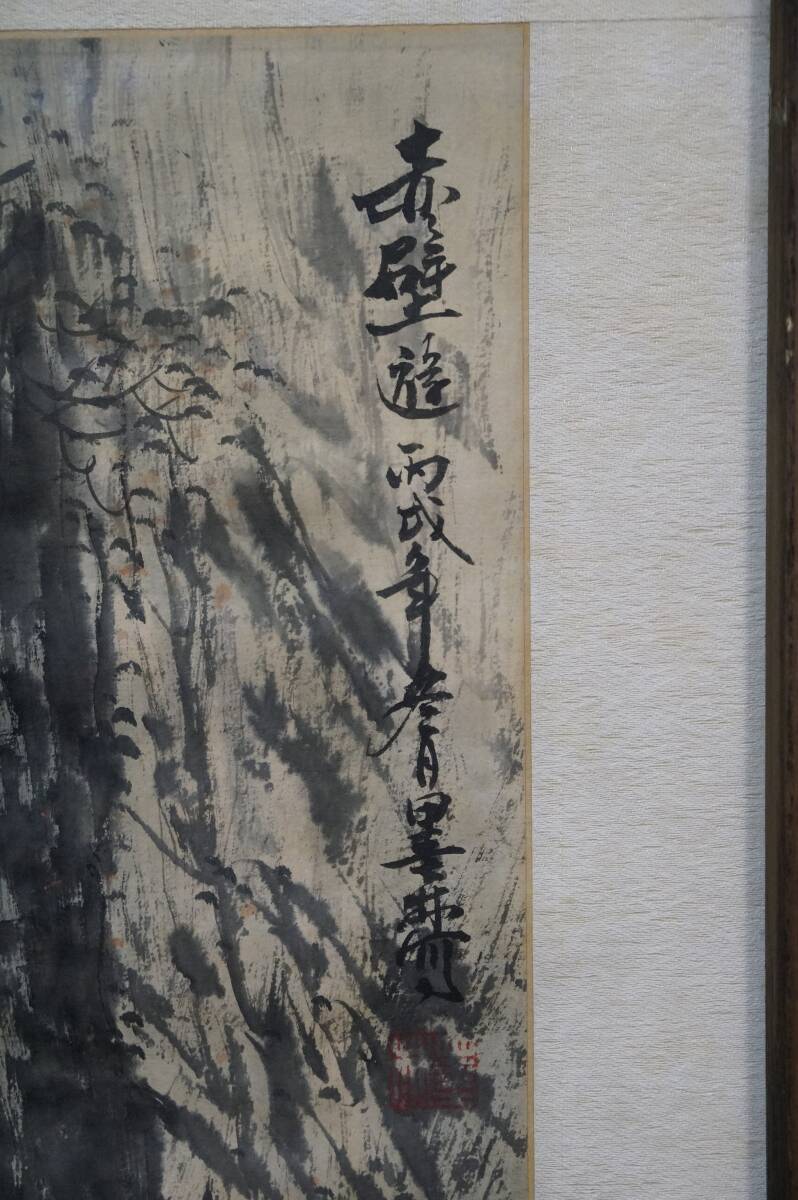 赤壁遊 丙戌年冬月墨林寫